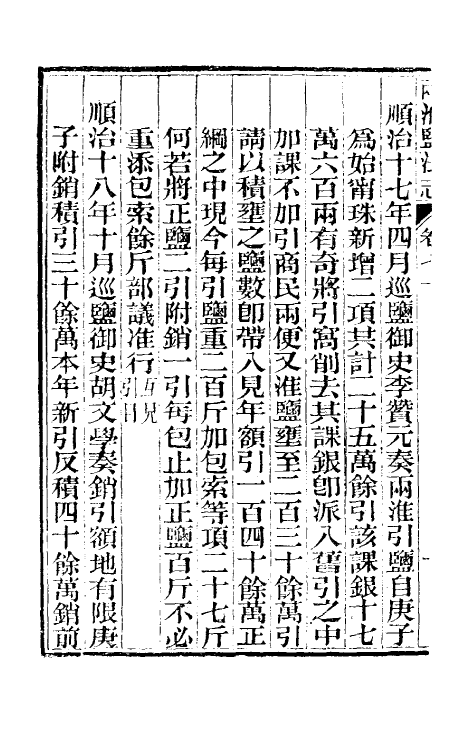 兩淮鹽法志 卷七 一
順治十七年四月巡鹽御史李贊元奏兩淮引鹽自庚子
爲始甯珠新增二項共計二十五萬餘引該課銀十七
萬六百兩有奇將引窩削去其課銀卽派入舊引之中
加課不加引商民兩便又淮鹽壅至二百三十餘萬引
請以積壅之鹽數卽帶入見年額引一百四十餘萬正
綱之中現今每引鹽重二百斤加包索等項二十七斤
何若將正鹽二引附銷一引每包止加正鹽百斤不必
重添包索餘斤部議准行互見引目
順治十八年十月巡鹽御史胡文學奏銷引額地有限庚
子附銷積引三十餘萬本年新引反積四十餘萬銷前